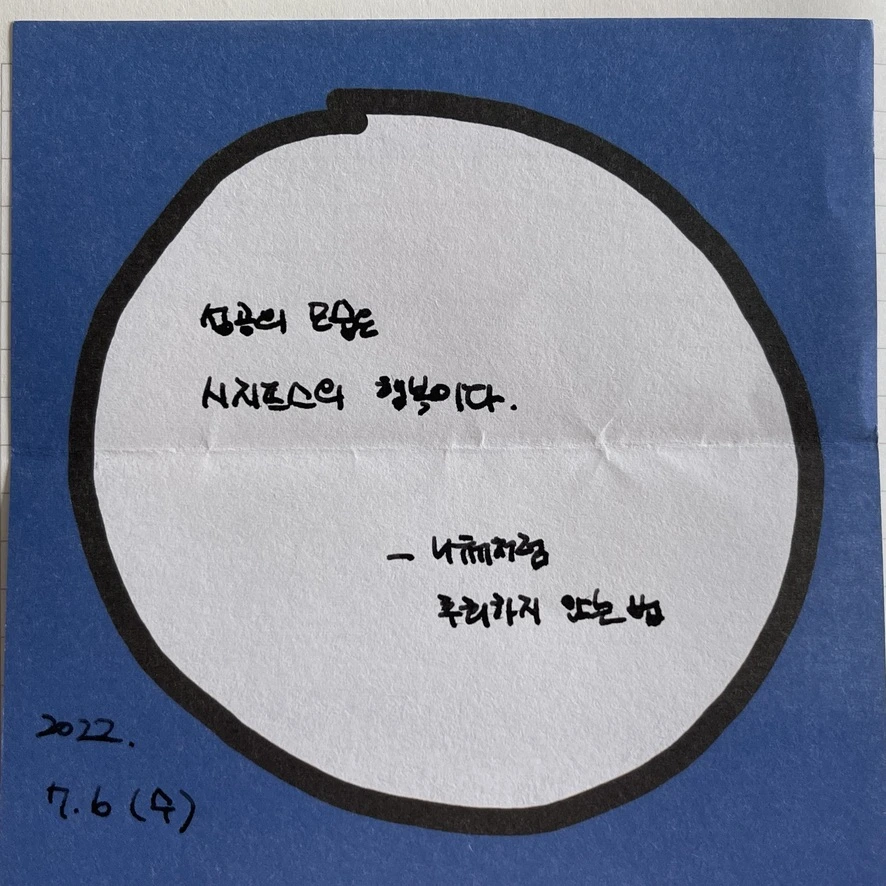 성공의 모습은
시지프스의 행복이다.
- 니체처럼
후회하지 않는 법
2022.
7.6 (수)